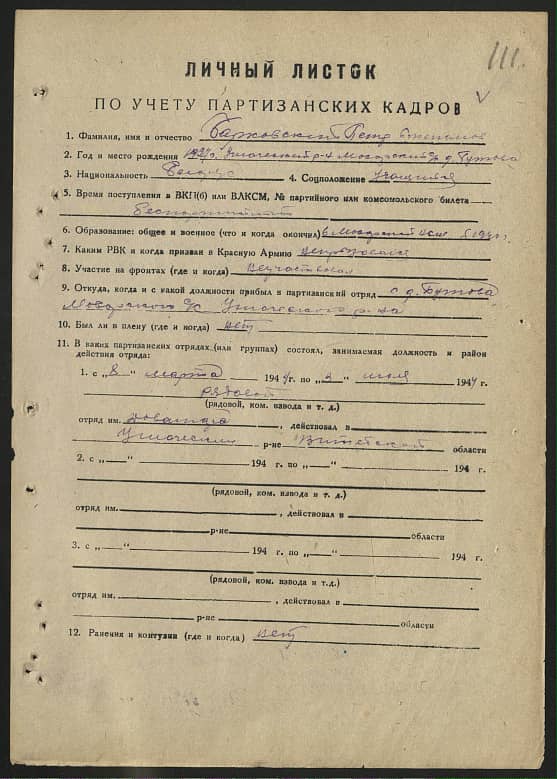 111.
ЛИЧНЫЙ ЛИСТОК
ПО УЧЕТУ ПАРТИЗАНСКИХ КАДРОВ
1. Фамилия, имя и отчество Барковский Петр
2. Год и место рождения
3. Национальность Беларус 4. Соцположение учащийся
5. Время поступления в ВКП(б) или ВЛКСМ, № партийного или комсомольского билета
беспартийный
6. Образование: общее и военное (что и когда окончил)
7. Каким РВК и когда призван в Красную Армию
8. Участие на фронтах (где и когда)
9. Откуда, когда и с какой должности прибыл в партизанский отряд с д.
10. Был ли в плену (где и когда) нет
11. В каких партизанских отрядах (или группах) состоял, занимаемая должность и район
действия отряда:
1. с „8“ марта 1944 г. по „2“ июля 1944 г.
рядовой
(рядовой, ком. взвода и т. д.)
отряд им. , действовал в
р-не Витебской области
2. с „—“ 194 г. по „—“ 194 г.
(рядовой, ком. взвода и т.д.)
отряд им. , действовал в
р-не области
3. с „—“ 194 г. по „—“ 194 г.
(рядовой, ком. взвода и т.д.)
отряд им. , действовал в
р-не области
12. Ранения и контузии (где и когда) нет